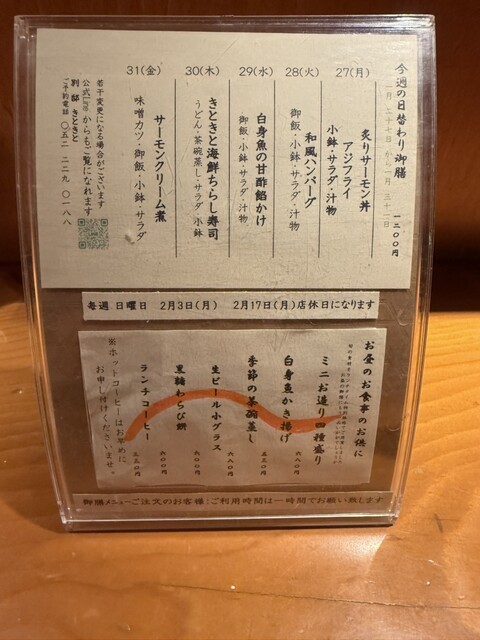 今週の日替わり御膳 一二〇〇円
一月二十七日から一月三十一日
27(月)
炙りサーモン丼
アジフライ
小鉢・サラダ・汁物
28(火)
和風ハンバーグ
御飯・小鉢・サラダ・汁物
29(水)
白身魚の甘酢餡かけ
御飯・小鉢・サラダ・汁物
30(木)
きときと海鮮ちらし寿司
うどん・茶碗蒸し・サラダ・小鉢
31(金)
サーモンクリーム煮
味噌カツ・御飯・小鉢・サラダ
若干変更になる場合がございます
公式LINEからもご覧になれます
別邸 きときと
ご予約電話 〇五二 二二九 〇一八八
毎週 日曜日 2月3日(月) 2月17日(月)店休日になります
お昼のお食事のお供に
ミニお造り四種盛り 六八〇円
白身魚かき揚げ 五五〇円
季節の茶碗蒸し 六八〇円
生ビール小グラス 六〇〇円
黒糖わらび餅 六〇〇円
ランチコーヒー 五五〇円
※ホットコーヒーはお早めに
お申し付けくださいませ。
御膳メニューご注文のお客様：ご利用時間は一時間でお願い致します